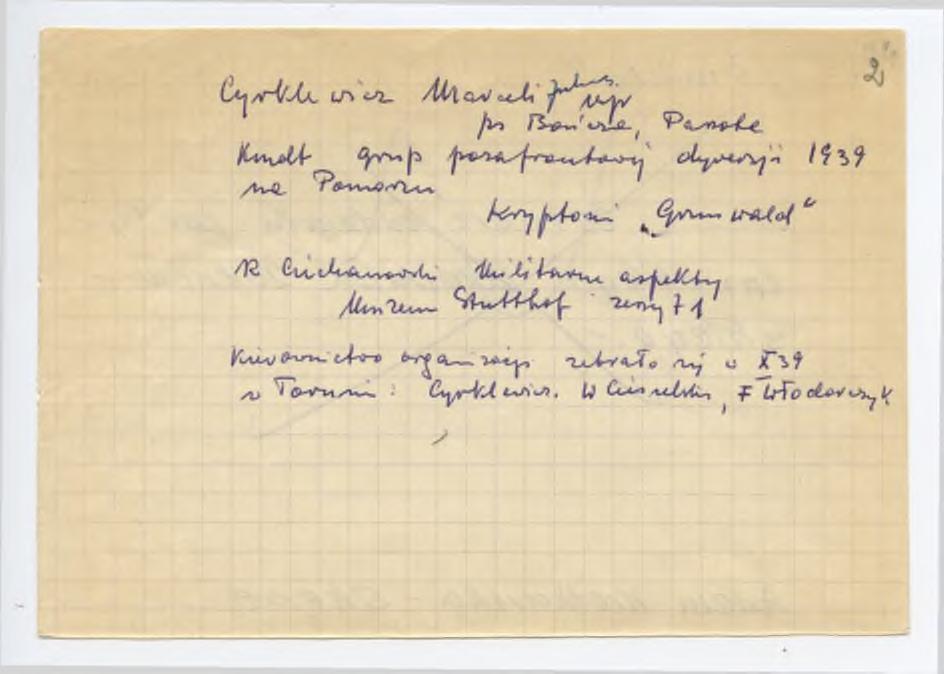 2
Cyrklewicz Marceli Juliusz. mjr
ps Bończa, Paproć
Kmdt grup pozafrontowej dywersji 1939
na Pomorzu
Kryptonim „Grunwald"
R Ciechanowski Militarne aspekty
Muzeum Stutthof zeszyt 1
Kierownictwo organizacji zebrało się w X 39
w Toruniu: Cyrklewicz. W Ciesielski, F Włodarczyk